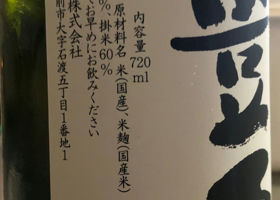 豊
内容量 720ml
原材料名 米(国産)、米麹(国産米)
%、掛米60%
お早めにお飲みください
株式会社
前市大字石渡五丁目1番地1